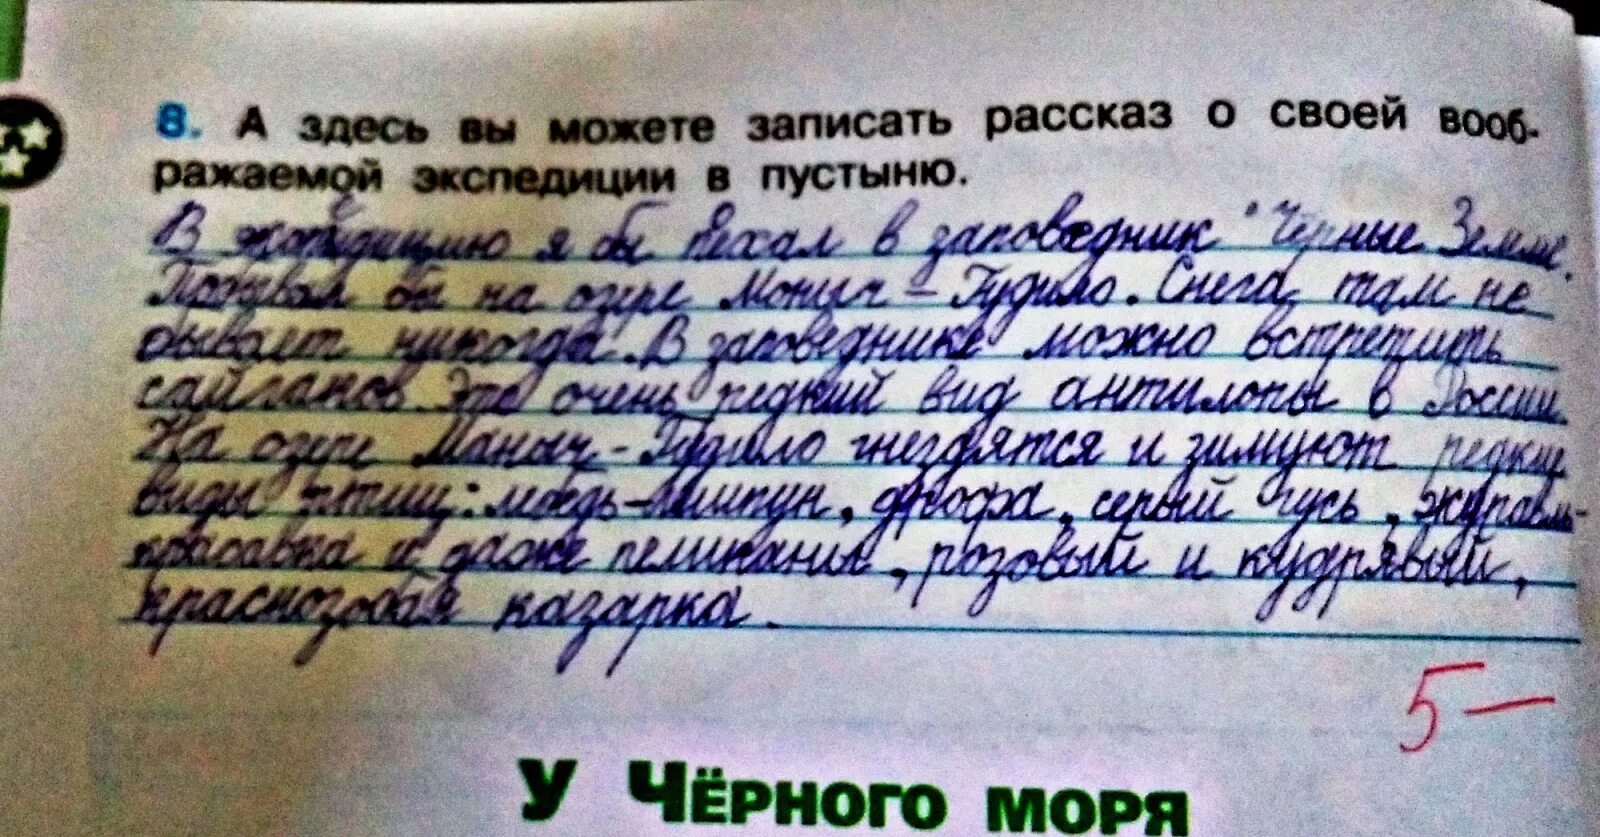 8. А здесь вы можете записать рассказ о своей вооб-
ражаемой экспедиции в пустыню.
В экспедицию я бы поехал в заповедник "Чёрные Земли".
Побывал бы на озере Маныч-Гудило. Снега там не
бывает никогда. В заповеднике можно встретить
сайгаков. Это очень редкий вид антилопы в России.
На озере Маныч-Гудило гнездятся и зимуют редкие
виды птиц: лебедь-шипун, дрофа, серый гусь, журавль-
красавка и даже пеликаны, розовый и кудрявый,
краснозобая казарка.
5-
У ЧЁРНОГО МОРЯ